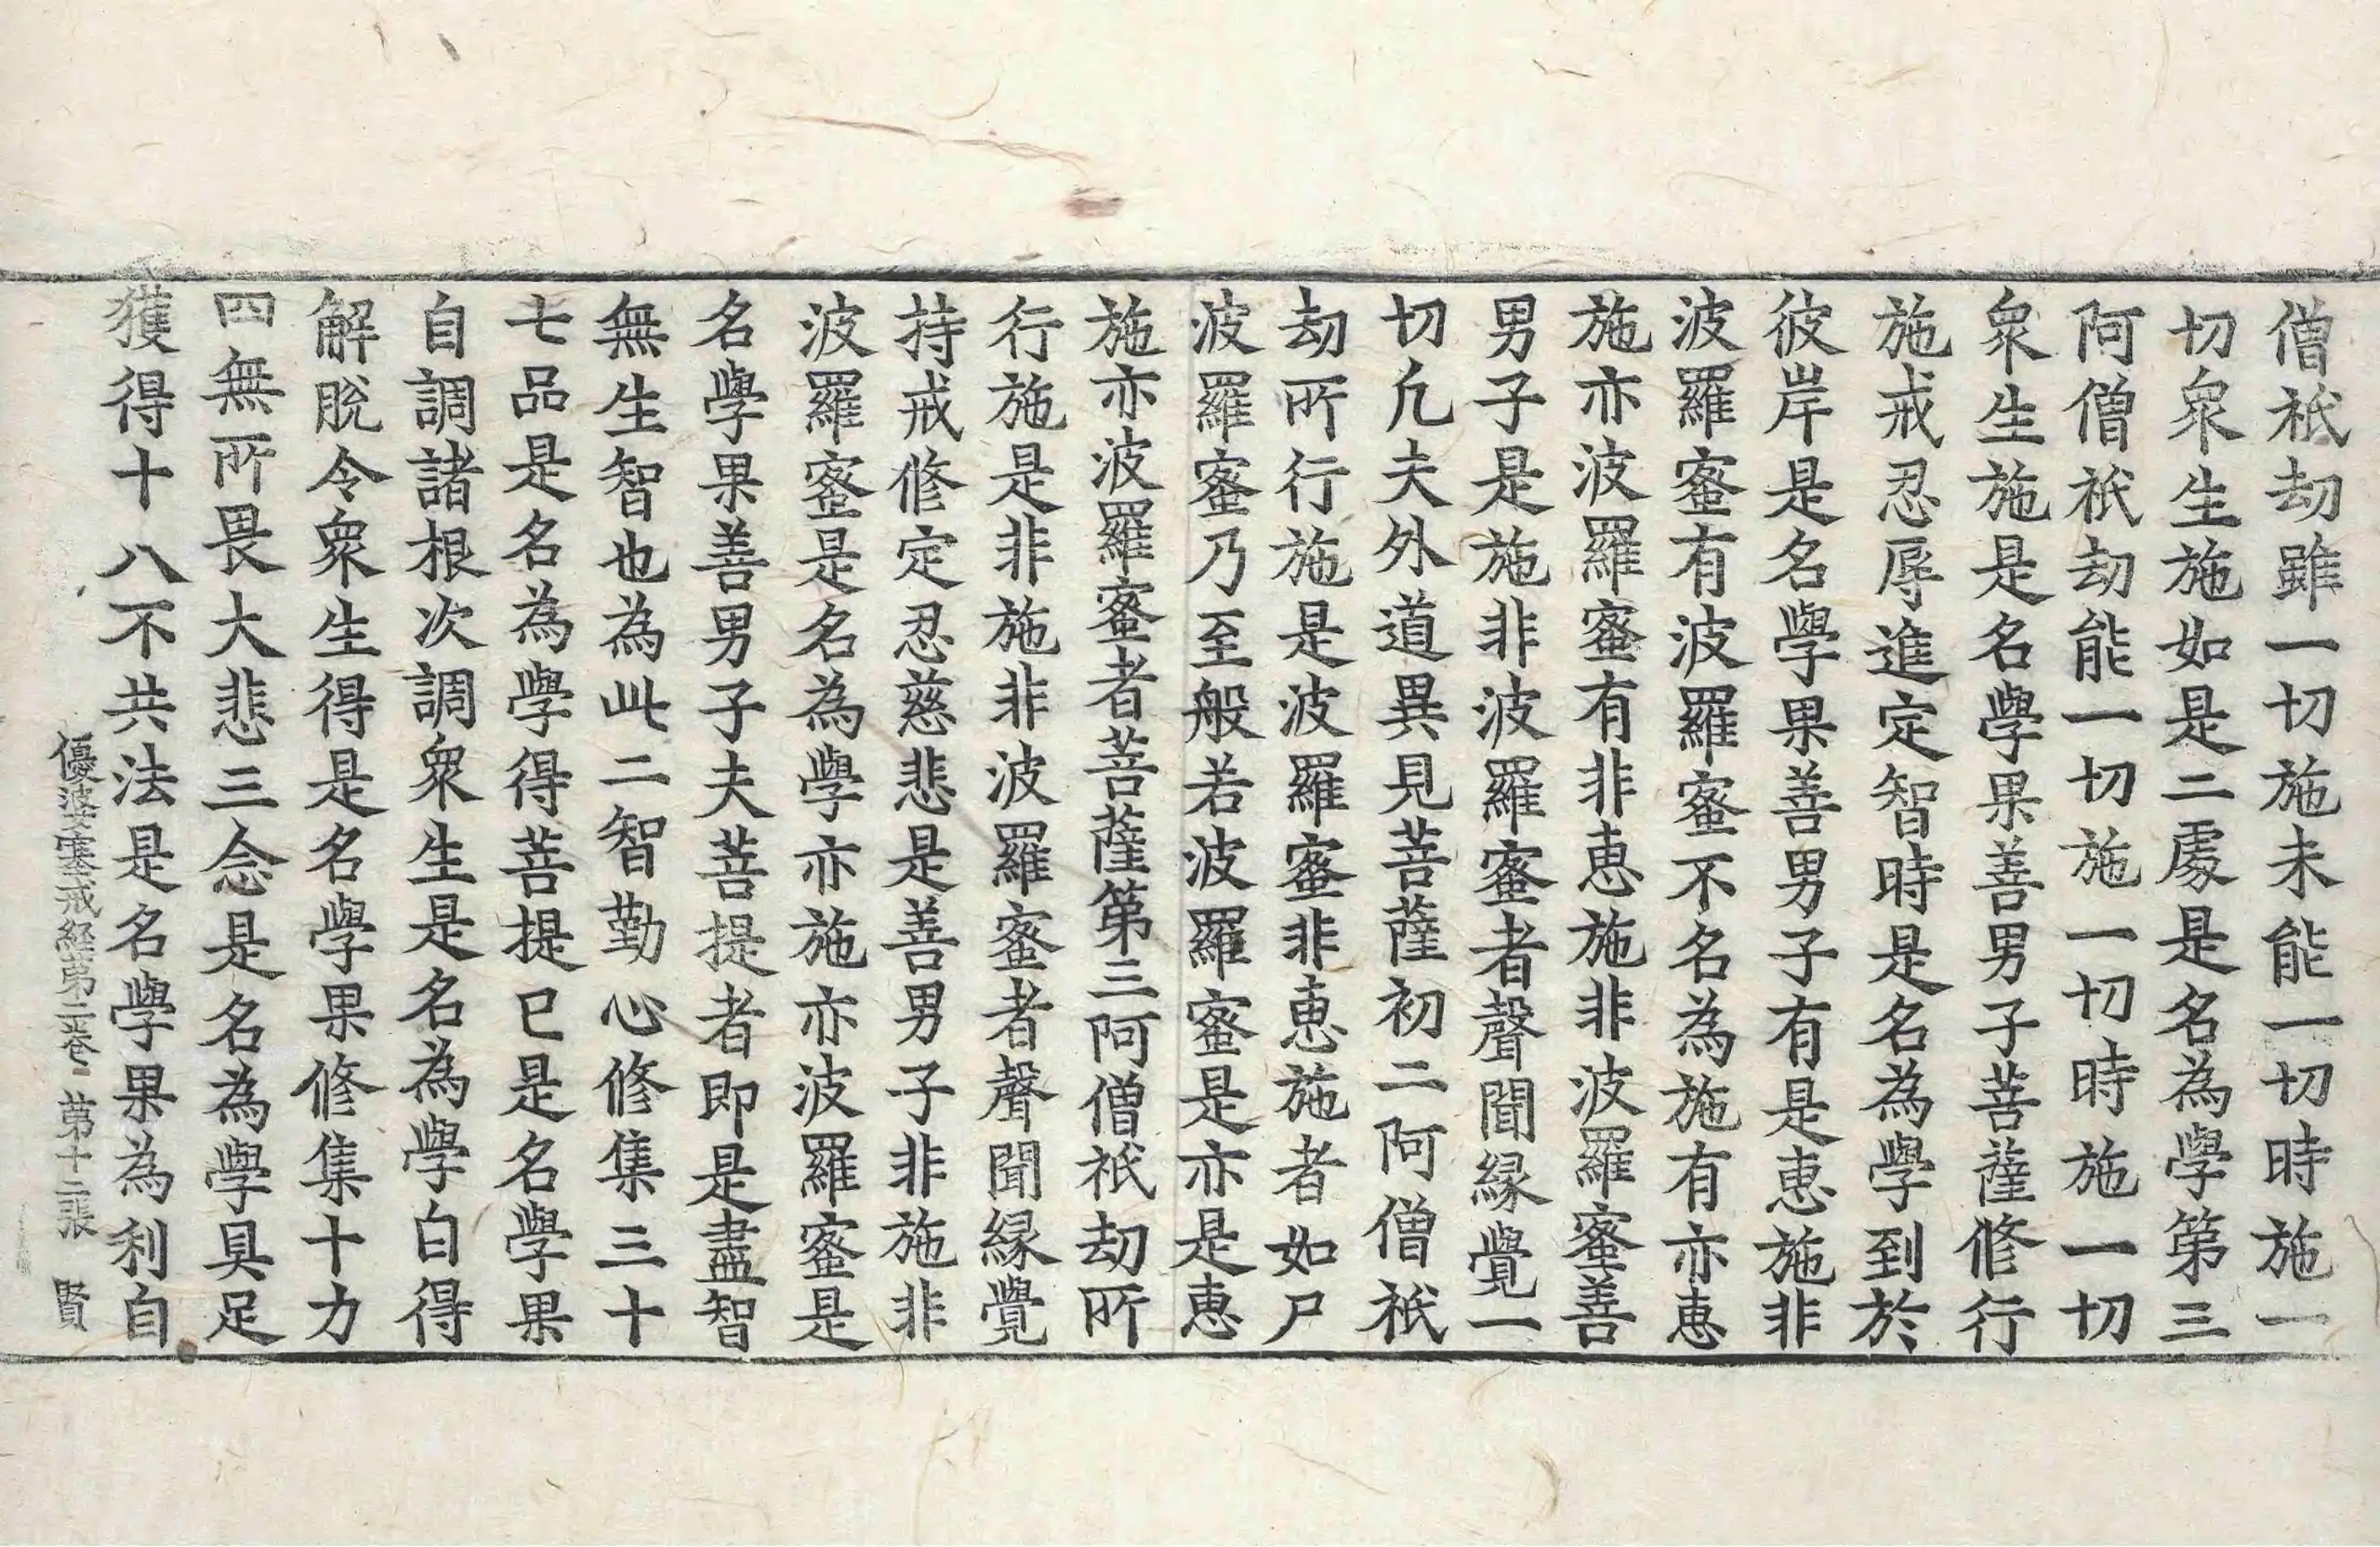 僧祇劫雖一切施未能一切時施一
切衆生施如是二處是名為學第三
阿僧祇劫能一切施一切時施一切
衆生施是名學果善男子菩薩修行
施戒忍辱進定智時是名為學到於
彼岸是名學果善男子有是恵施非
波羅蜜有波羅蜜不名為施有亦恵
施亦波羅蜜有非恵施非波羅蜜善
男子是施非波羅蜜者聲聞縁覺一
切凢夫外道異見菩薩初二阿僧祇
劫所行施是波羅蜜非恵施者如尸
波羅蜜乃至般若波羅蜜是亦是恵
施亦波羅蜜者菩薩第三阿僧祇劫所
行施是非施非波羅蜜者聲聞縁覺
持戒修定忍慈悲是善男子非施非
波羅蜜是名為學亦施亦波羅蜜是
名學果善男子夫菩提者即是盡智
無生智也為此二智勤心修集三十
七品是名為學得菩提已是名學果
自調諸根次調衆生是名為學自得
解脫令衆生得是名學果修集十力
四無所畏大悲三念是名為學具足
獲得十八不共法是名學果為利自
優婆塞戒経第二卷 第十二張 賢